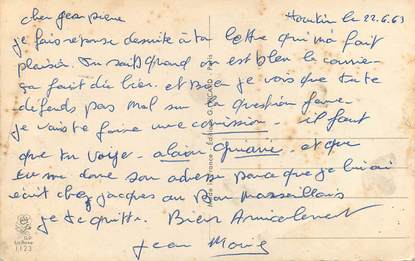 cher jean pierre
le 22.6.63
je fais reponse desuite a ta lettre qui m'a fait
plaisir. Tu sait quand on est bleu le courrier
ça fait du bien. et bien je vois que tu te
défends pas mal sur la question
je vais te faire une comission. il faut
que tu voije. alain et que
tu me donne son adresse parce que je lui ai
écrit chez jacques au Bon Marseillais
je te quitte. Bien Amicalement
Jean
1123